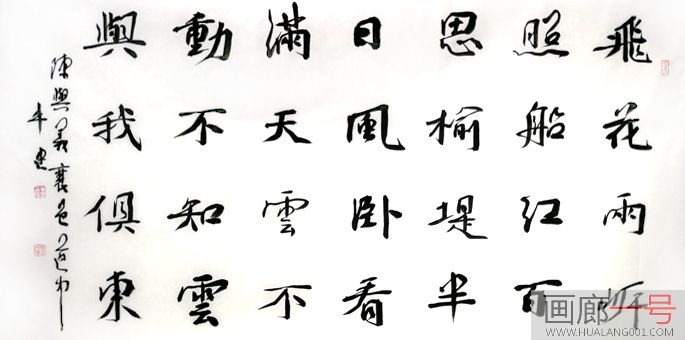 飛花兩岸
照船红百
思榆堤半
日風卧看
滿天雲不
動不知雲
與我俱東
陳與義襄邑道中
画廊一号
WWW.HUALANG001.COM